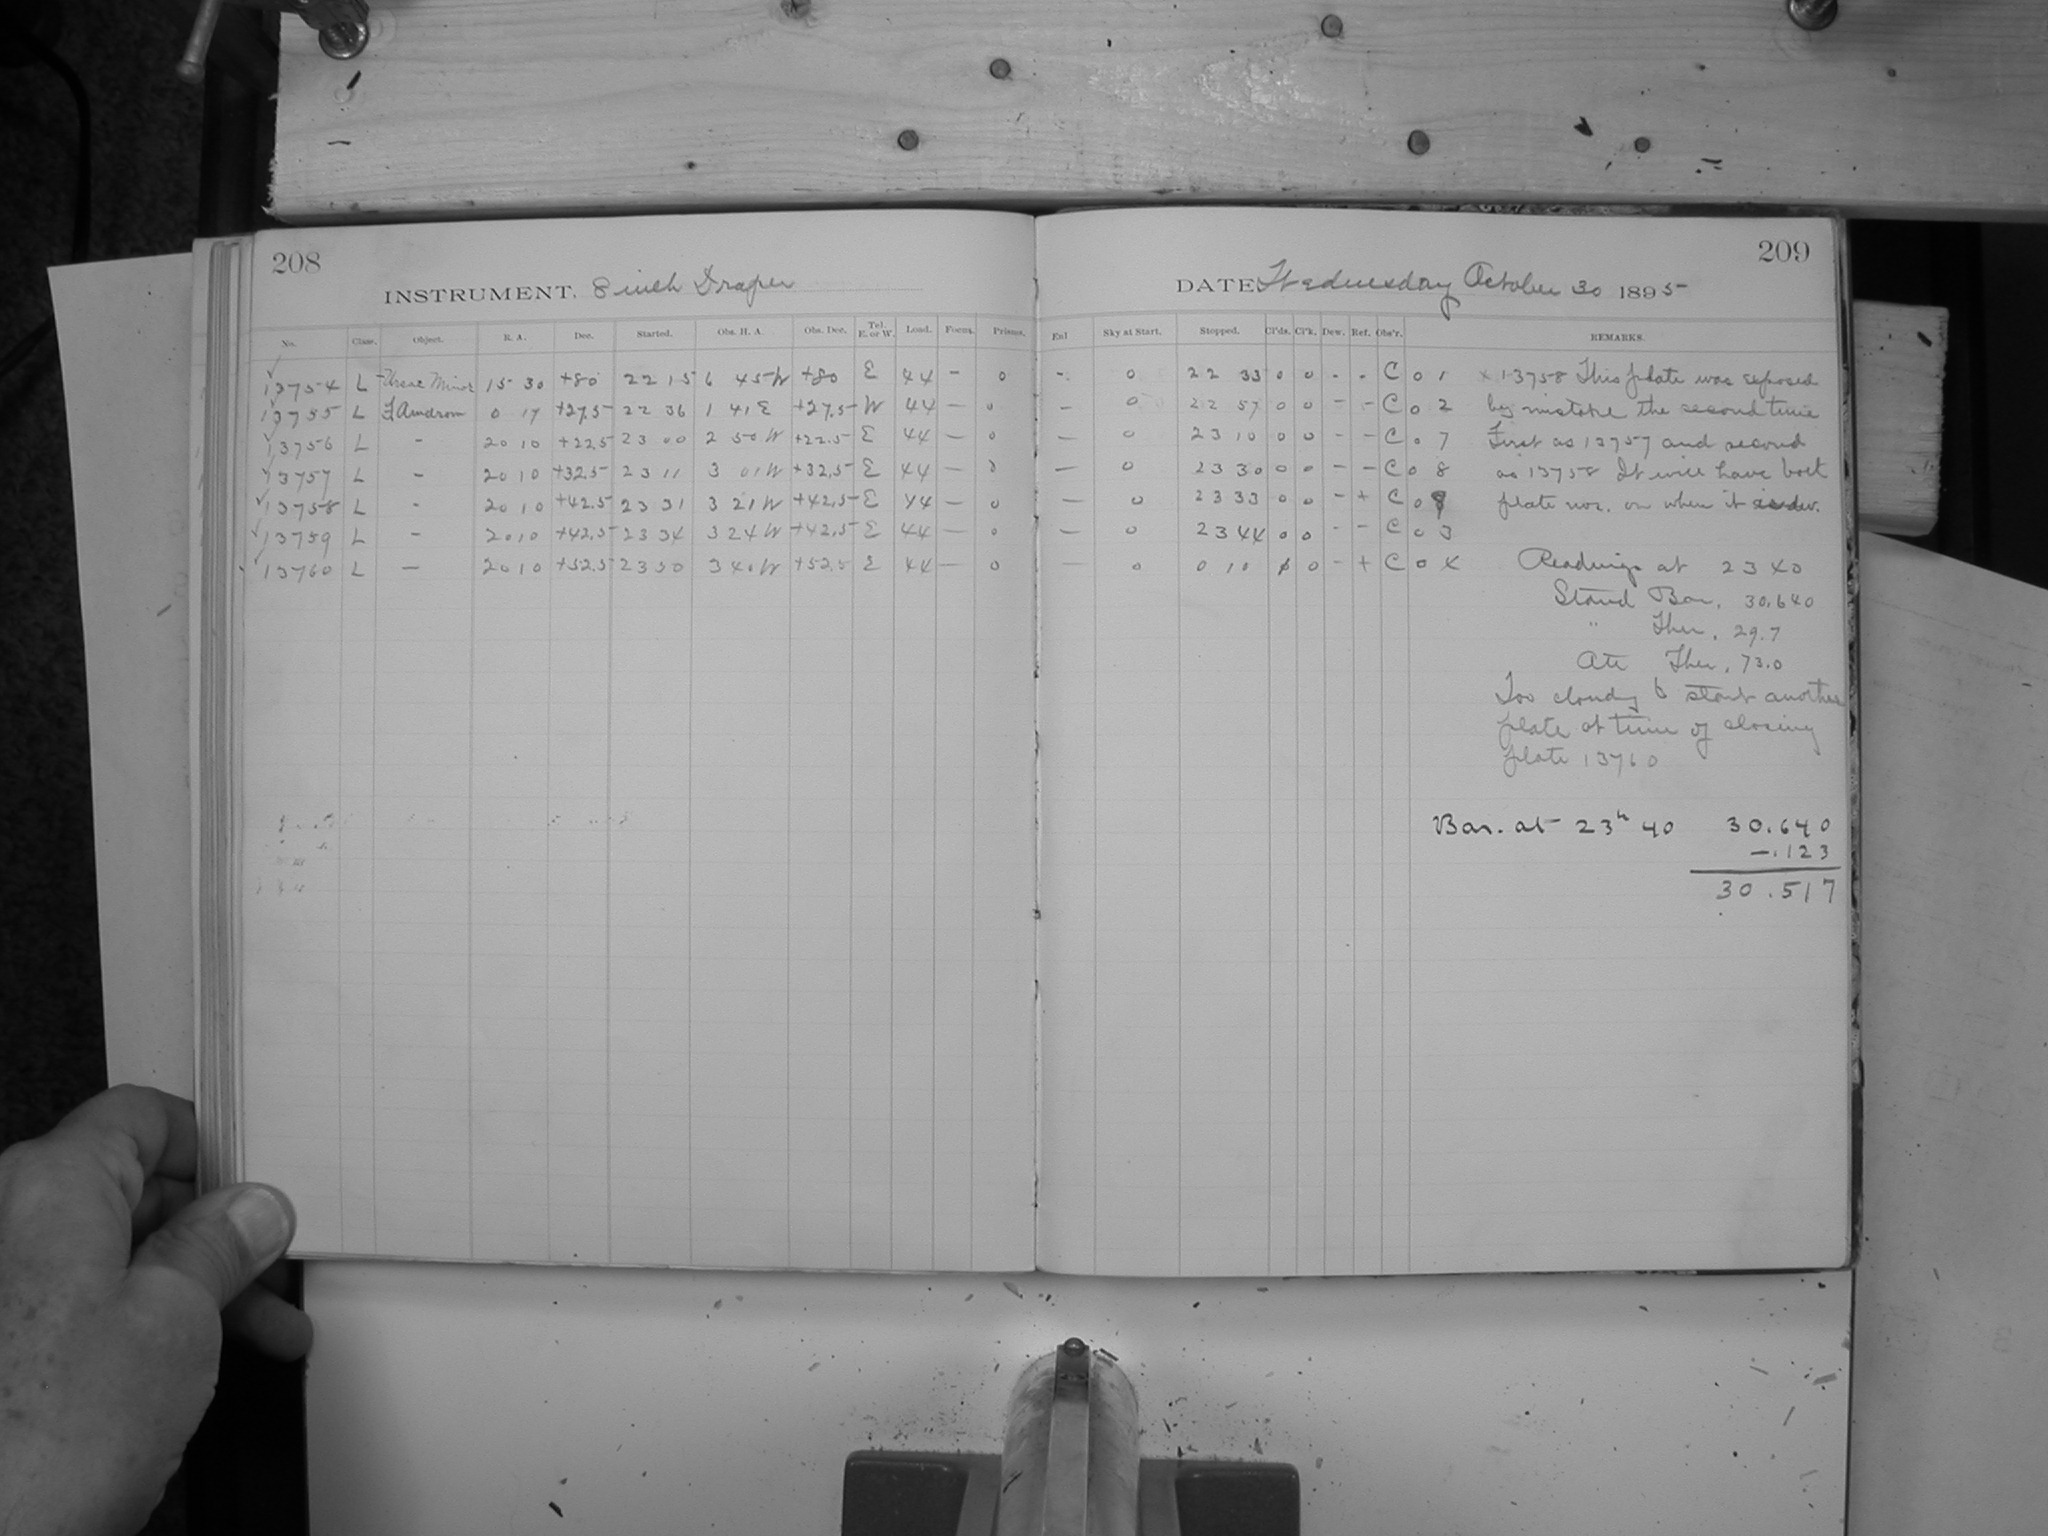 208
209
INSTRUMENT. 8 inch Draper
DATE Wednesday October 30 1895
No. Class. Object. R. A. Dec. Started. Obs. H. A. Obs. Dec. Tel. E. or W. Load. Focus. Prisms. Enl Sky at Start. Stopped. Cl'ds. Cl'k. Dew. Ref. Obs'r. REMARKS.
✓13754 L Ursae Minor 15 30 +80 22 15 6 45 W +80 E 44 — 0 - 0 22 33 0 0 - - C 0 1 x 13758 This plate was exposed
✓13755 L Androm 0 17 +27.5 22 36 1 41 E +27.5 W 44 — 0 — 0 22 57 0 0 - - C 0 2 by mistake the second time
✓13756 L - 20 10 +22.5 23 00 2 50 W +22.5 E 44 — 0 — 0 23 10 0 0 - - C 0 7 First as 13757 and second
✓13757 L - 20 10 +32.5 23 11 3 01 W +32.5 E 44 — 0 — 0 23 30 0 0 - - C 0 8 as 13758 It will have both
✓13758 L - 20 10 +42.5 23 31 3 21 W +42.5 E 44 — 0 — 0 23 33 0 0 - + C 0 8 plate nos. on when it is dev.
✓13759 L - 20 10 +42.5 23 34 3 24 W +42.5 E 44 — 0 — 0 23 44 0 0 - - C 0 3
✓13760 L — 20 10 +52.5 23 50 3 40 W +52.5 E 44 — 0 — 0 0 10 0 - + C 0 4
Readings at 23 40
Stand Bar. 30.640
" Ther. 29.7
Att Ther. 73.0
Too cloudy to start another
plate at time of closing
plate 13760
Bar. at 23h 40 30.640
—.123
30.517